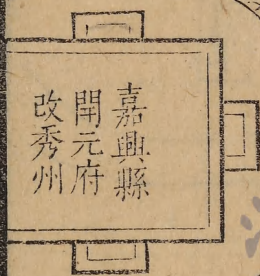 嘉興縣
開元府
改秀州